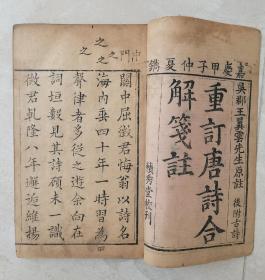 嘉慶甲子仲夏鐫
吳郡王翼雲先生原註 後附古詩
重訂唐詩合
解箋註
積秀堂梓刊
關中屈徵君悔翁以詩名
海內垂四十年一時習為
聲律者多從之遊余向在
詞垣數見其詩顧未一識
徵君乾隆八年邂逅維揚
門
之
之
之